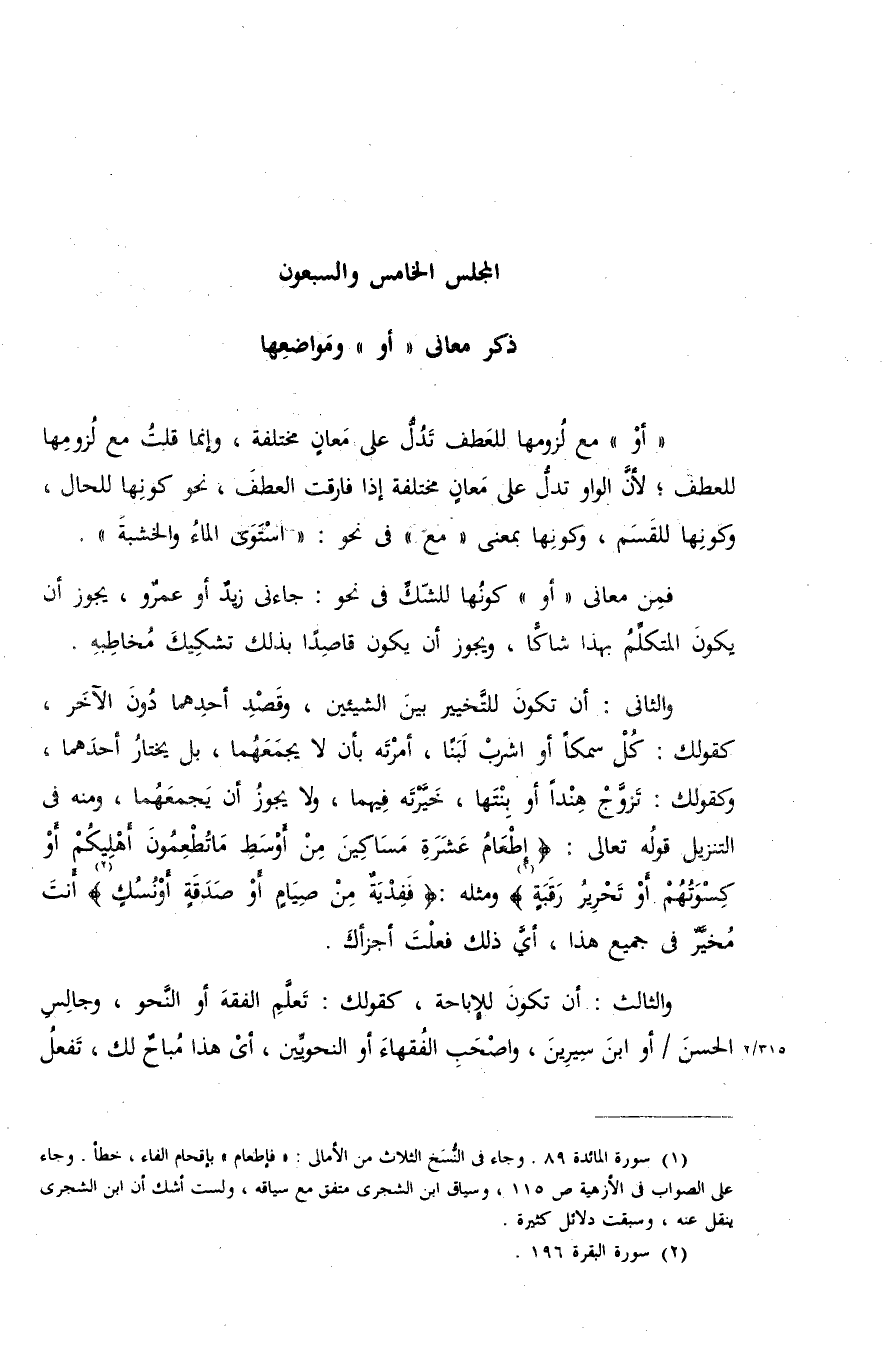 المجلس الخامس والسبعون
ذكر معانى « أو » ومَواضعِها
« أوْ » مع لُزومها للعَطف تَدُلُّ على مَعانٍ مختلفة ، وإنما قلتُ مع لُزومِها
للعطف ؛ لأنَّ الواو تدلُّ على مَعانٍ مختلفة إذا فارقت العطفَ ، نحو كونِها للحال ،
وكونِها للقَسَم ، وكونِها بمعنى « معَ » فى نحو : « اسْتَوَى الماءُ والخشبةَ » .
فمِن معانى « أو » كونُها للشكِّ فى نحو : جاءنى زيدٌ أو عمرٌو ، يجوز أن
يكونَ المتكلِّمُ بهذا شاكًّا ، ويجوز أن يكون قاصِدًا بذلك تشكِيكَ مُخاطِبهِ .
والثانى : أن تكونَ للتَّخيير بينَ الشيئين ، وقَصْدِ أحدِهما دُونَ الآخَر ،
كقولك : كُلْ سمكاً أو اشربْ لَبَنًا ، أمرْتَه بأن لا يجمَعَهُما ، بل يختارُ أحدَهما ،
وكقولك : تَزوَّجْ هِنْداً أو بِنْتَها ، خَيَّرْتَه فِيهما ، ولا يجوزُ أن يَجمعَهُما ، ومنه فى
التنزيل قولُه تعالى : ﴿ إِطْعَامُ عَشَرَةِ مَسَاكِينَ مِنْ أَوْسَطِ مَاتُطْعِمُونَ أَهْلِيكُمْ أَوْ
كِسْوَتُهُمْ أَوْ تَحْرِيرُ رَقَبَةٍ ﴾(١) ومثله :﴿ فَفِدْيَةٌ مِنْ صِيَامٍ أَوْ صَدَقَةٍ أَوْنُسُكٍ ﴾(٢) أنتَ
مُخيَّرٌ فى جميع هذا ، أىَّ ذلك فعلْتَ أجزأكَ .
والثالث : أن تكونَ للإباحة ، كقولك : تَعلَّمِ الفقهَ أو النَّحو ، وجالِسِ
الحسنَ / أو ابنَ سِيرِينَ ، واصْحَبِ الفُقهاءَ أو النحويِّين ، أىْ هذا مُباحٌ لك ، تَفعلُ ٢/٣١٥
(١) سورة المائدة ٨٩ . وجاء فى النُّسَخ الثلاث من الأمالى : « فإطعام » بإقحام الفاء ، خطأ . وجاء
على الصواب فى الأزهية ص ١١٥ ، وسياق ابن الشجرى متفق مع سياقه ، ولست أشك أن ابن الشجرى
ينقل عنه ، وسبقت دلائل كثيرة .
(٢) سورة البقرة ١٩٦ .